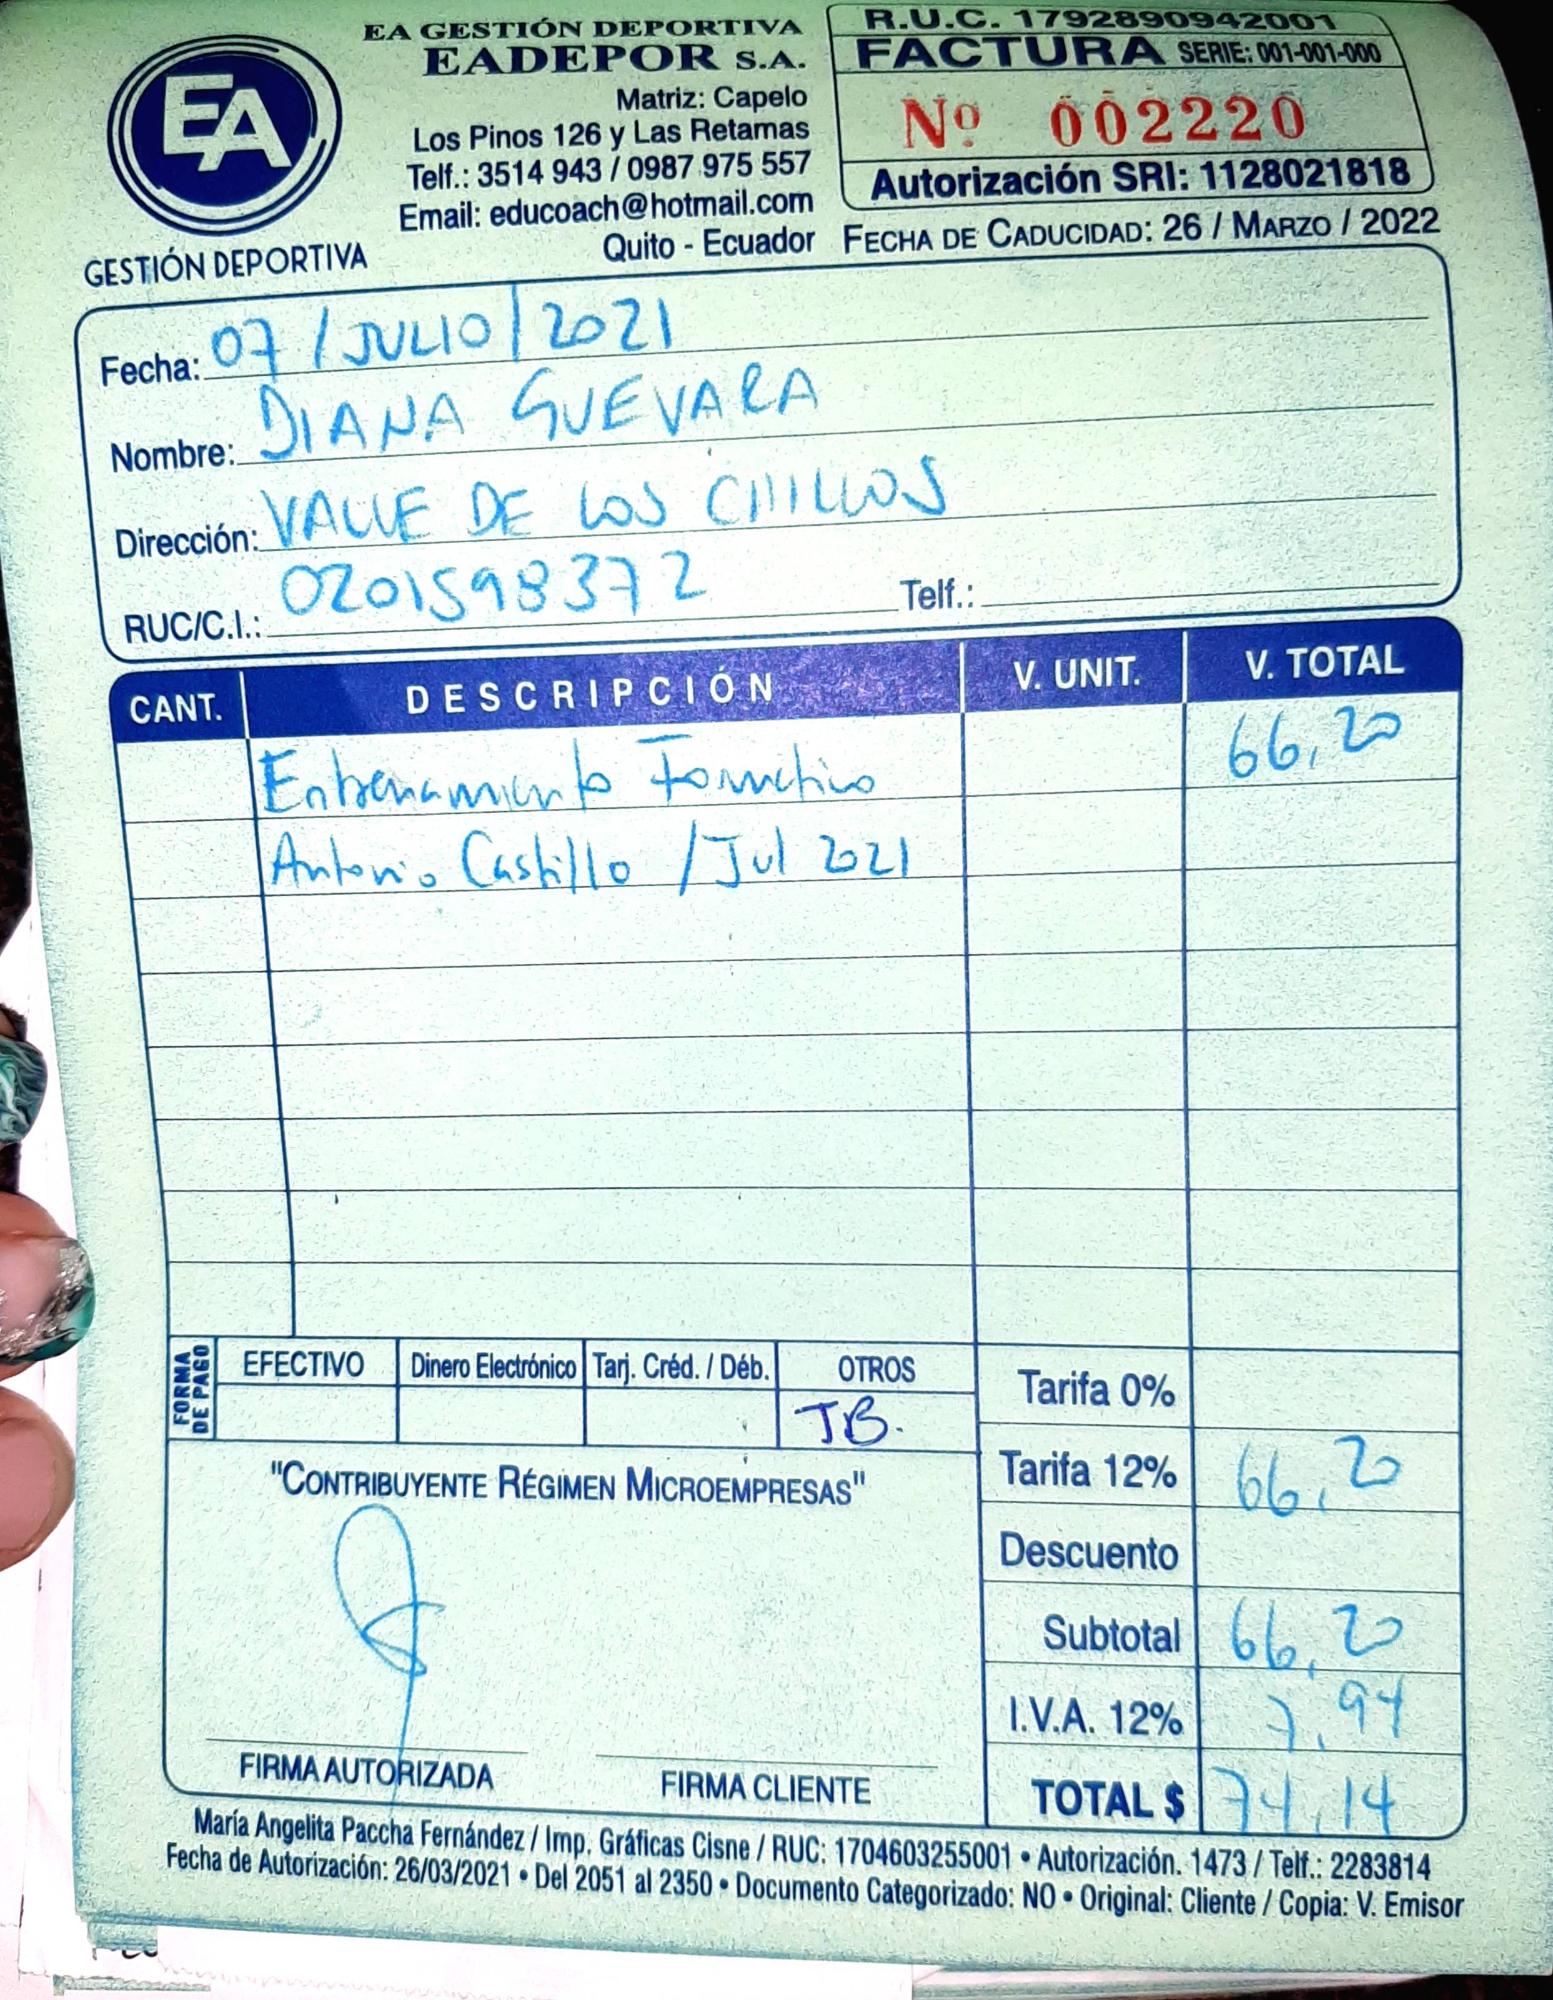 EA
GESTIÓN DEPORTIVA
EA GESTIÓN DEPORTIVA
EADEPOR S.A.
Matriz: Capelo
Los Pinos 126 y Las Retamas
Telf.: 3514 943 / 0987 975 557
Email: educoach@hotmail.com
Quito - Ecuador
R.U.C. 1792890942001
FACTURA SERIE: 001-001-000
Nº 002220
Autorización SRI: 1128021818
FECHA DE CADUCIDAD: 26 / MARZO / 2022
Fecha: 07 / JULIO / 2021
Nombre: DIANA GUEVARA
Dirección: VALLE DE LOS CHILLOS
RUC/C.I.: 0201598372 Telf.:
CANT. DESCRIPCIÓN V. UNIT. V. TOTAL
Entrenamiento Formativo 66,20
Antonio Castillo / Jul 2021
FORMA DE PAGO
EFECTIVO Dinero Electrónico Tarj. Créd. / Déb. OTROS
TB.
Tarifa 0%
Tarifa 12% 66,20
Descuento
Subtotal 66,20
I.V.A. 12% 7,94
TOTAL $ 74,14
"CONTRIBUYENTE RÉGIMEN MICROEMPRESAS"
FIRMA AUTORIZADA FIRMA CLIENTE
María Angelita Paccha Fernández / Imp. Gráficas Cisne / RUC: 1704603255001 • Autorización. 1473 / Telf.: 2283814
Fecha de Autorización: 26/03/2021 • Del 2051 al 2350 • Documento Categorizado: NO • Original: Cliente / Copia: V. Emisor